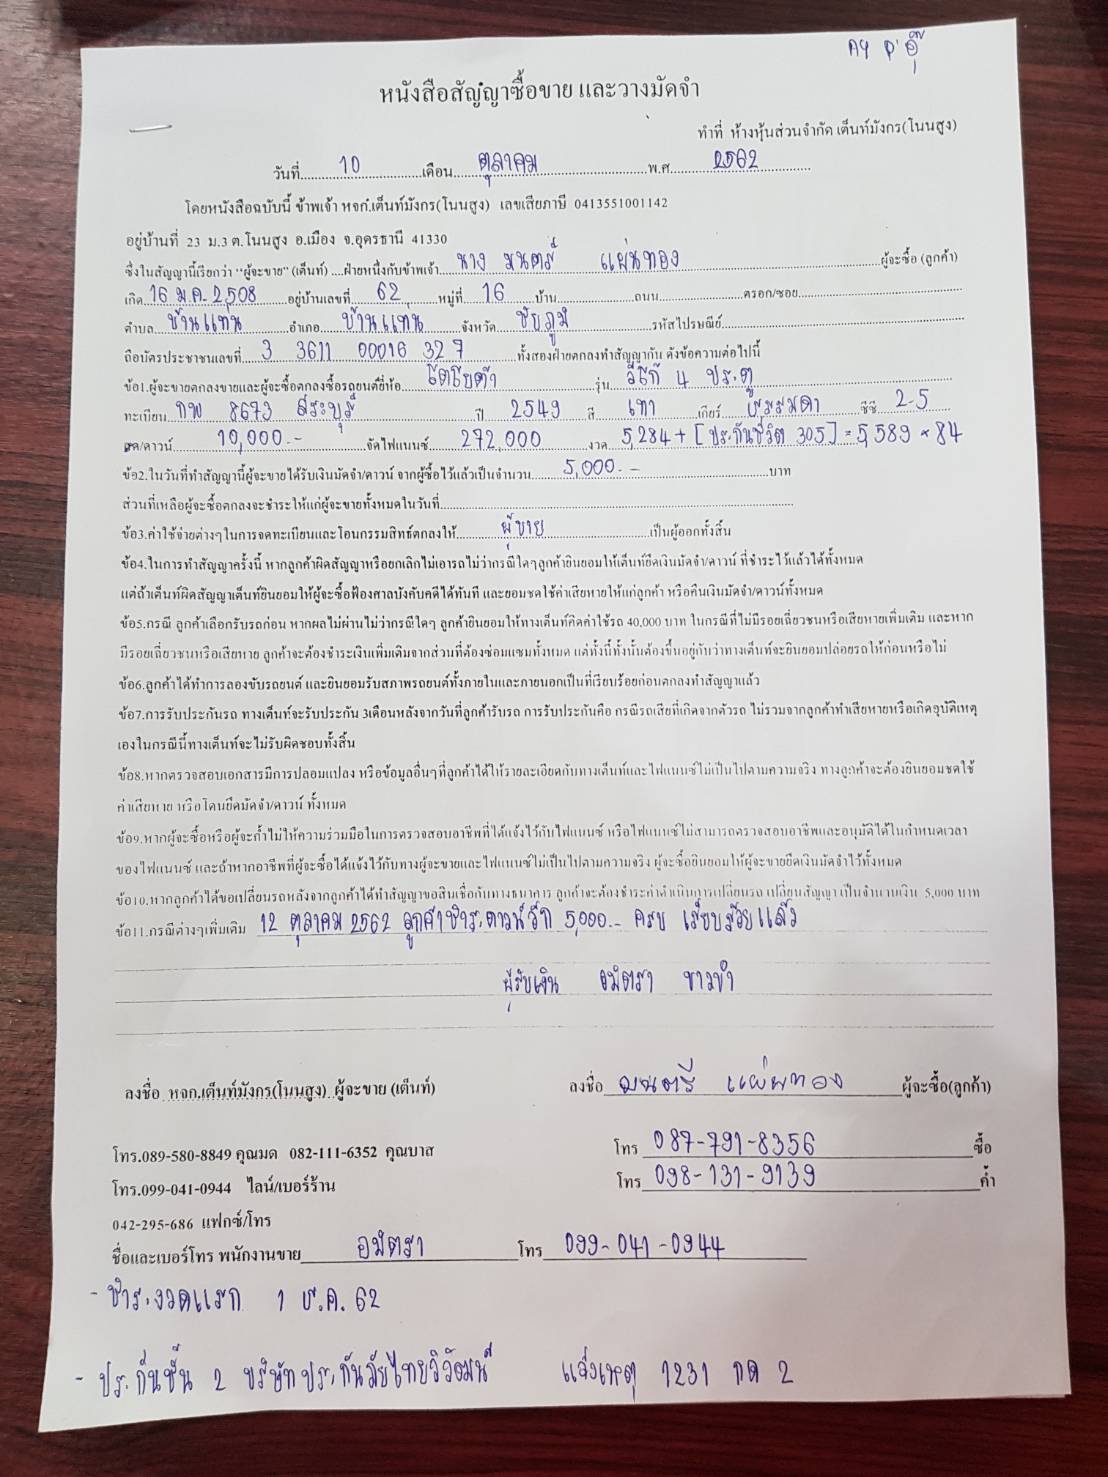 หนังสือสัญญาซื้อขาย และวางมัดจำ
ทำที่ ห้างหุ้นส่วนจำกัด เต็นท์มังกร(โนนสูง)
วันที่ 10 เดือน ตุลาคม พ.ศ. 2562
โดยหนังสือฉบับนี้ ข้าพเจ้า หจก.เต็นท์มังกร(โนนสูง) เลขเสียภาษี 0413551001142
อยู่บ้านที่ 23 ม.3 ต.โนนสูง อ.เมือง จ.อุดรธานี 41330
ซึ่งในสัญญานี้เรียกว่า "ผู้จะขาย" (เต็นท์) ....ฝ่ายหนึ่งกับข้าพเจ้า นาง มนตรี แผ่นทอง ผู้จะซื้อ (ลูกค้า)
เกิด 16 ม.ค. 2,508 อยู่บ้านเลขที่ 62 หมู่ที่ 16 บ้าน ถนน ตรอก/ซอย
ตำบล บ้านแท่น อำเภอ บ้านแท่น จังหวัด ชัยภูมิ รหัสไปรษณีย์
ถือบัตรประชาชนเลขที่ 3 3611 00016 32 7 ทั้งสองฝ่ายตกลงทำสัญญากัน ดังข้อความต่อไปนี้
ข้อ1.ผู้จะขายตกลงขายและผู้จะซื้อตกลงซื้อรถยนต์ยี่ห้อ โตโยต้า รุ่น วีโก้ 4 ประตู
ทะเบียน กพ 8673 สระบุรี ปี 2549 สี เทา เกียร์ ธรรมดา ซีซี 2.5
สด/ดาวน์ 10,000.- จัดไฟแนนซ์ 272,000 งวด 5,284 + [ประกันชีวิต 305] = 5,589 × 84
ข้อ2.ในวันที่ทำสัญญานี้ผู้จะขายได้รับเงินมัดจำ/ดาวน์ จากผู้ซื้อไว้แล้วเป็นจำนวน 5,000.- บาท
ส่วนที่เหลือผู้จะซื้อตกลงจะชำระให้แก่ผู้จะขายทั้งหมดในวันที่
ข้อ3.ค่าใช้จ่ายต่างๆในการจดทะเบียนและโอนกรรมสิทธิ์ตกลงให้ ผู้ขาย เป็นผู้ออกทั้งสิ้น
ข้อ4.ในการทำสัญญาครั้งนี้ หากลูกค้าผิดสัญญาหรือยกเลิกไม่เอารถไม่ว่ากรณีใดๆลูกค้ายินยอมให้เต็นท์ยึดเงินมัดจำ/ดาวน์ ที่ชำระไว้แล้วได้ทั้งหมด
แต่ถ้าเต็นท์ผิดสัญญาเต็นท์ยินยอมให้ผู้จะซื้อฟ้องศาลบังคับคดีได้ทันที และยอมชดใช้ค่าเสียหายให้แก่ลูกค้า หรือคืนเงินมัดจำ/ดาวน์ทั้งหมด
ข้อ5.กรณี ลูกค้าเลือกรับรถก่อน หากผลไม่ผ่านไม่ว่ากรณีใดๆ ลูกค้ายินยอมให้ทางเต็นท์คิดค่าใช้รถ 40,000 บาท ในกรณีที่ไม่มีรอยเฉี่ยวชนหรือเสียหายเพิ่มเติม และหาก
มีรอยเฉี่ยวชนหรือเสียหาย ลูกค้าจะต้องชำระเงินเพิ่มเติมจากส่วนที่ต้องซ่อมแซมทั้งหมด แต่ทั้งนี้ทั้งนั้นต้องขึ้นอยู่กับว่าทางเต็นท์จะยินยอมปล่อยรถให้ก่อนหรือไม่
ข้อ6.ลูกค้าได้ทำการลองขับรถยนต์ และยินยอมรับสภาพรถยนต์ทั้งภายในและภายนอกเป็นที่เรียบร้อยก่อนตกลงทำสัญญาแล้ว
ข้อ7.การรับประกันรถ ทางเต็นท์จะรับประกัน 3เดือนหลังจากวันที่ลูกค้ารับรถ การรับประกันคือ กรณีรถเสียที่เกิดจากตัวรถ ไม่รวมจากลูกค้าทำเสียหายหรือเกิดอุบัติเหตุ
เองในกรณีนี้ทางเต็นท์จะไม่รับผิดชอบทั้งสิ้น
ข้อ8.หากตรวจสอบเอกสารมีการปลอมแปลง หรือข้อมูลอื่นๆที่ลูกค้าได้ให้รายละเอียดกับทางเต็นท์และไฟแนนซ์ไม่เป็นไปตามความจริง ทางลูกค้าจะต้องยินยอมชดใช้
ค่าเสียหาย หรือโดนยึดมัดจำ/ดาวน์ ทั้งหมด
ข้อ9.หากผู้จะซื้อหรือผู้จะค้ำไม่ให้ความร่วมมือในการตรวจสอบอาชีพที่ได้แจ้งไว้กับไฟแนนซ์ หรือไฟแนนซ์ไม่สามารถตรวจสอบอาชีพและอนุมัติได้ในกำหนดเวลา
ของไฟแนนซ์ และถ้าหากอาชีพที่ผู้จะซื้อได้แจ้งไว้กับทางผู้จะขายและไฟแนนซ์ไม่เป็นไปตามความจริง ผู้จะซื้อยินยอมให้ผู้จะขายยึดเงินมัดจำไว้ทั้งหมด
ข้อ10.หากลูกค้าได้ขอเปลี่ยนรถหลังจากลูกค้าได้ทำสัญญาขอสินเชื่อกับทางธนาคาร ลูกค้าจะต้องชำระค่าดำเนินการเปลี่ยนรถ เปลี่ยนสัญญา เป็นจำนวนเงิน 5,000 บาท
ข้อ11.กรณีต่างๆเพิ่มเติม 12 ตุลาคม 2562 ลูกค้าชำระดาวน์อีก 5,000.- ครบ เรียบร้อยแล้ว
ผู้รับเงิน อมิตรา ขาวขำ
ลงชื่อ หจก.เต็นท์มังกร(โนนสูง) ผู้จะขาย (เต็นท์) ลงชื่อ มนตรี แผ่นทอง ผู้จะซื้อ(ลูกค้า)
โทร.089-580-8849 คุณมด 082-111-6352 คุณบาส โทร 087-791-8356 ซื้อ
โทร.099-041-0944 ไลน์/เบอร์ร้าน โทร 098-131-9139 ค้ำ
042-295-686 แฟกซ์/โทร
ชื่อและเบอร์โทร พนักงานขาย อมิตรา โทร 099-041-0944
- ชำระงวดแรก 1 ธ.ค. 62
- ประกันชั้น 2 บริษัทประกันภัยไทยวิวัฒน์ แจ้งเหตุ 1231 กด 2